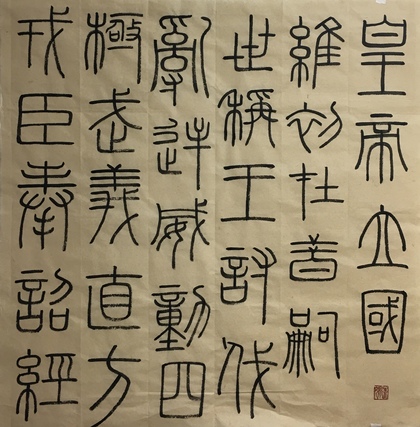 皇帝立國
維初在昔嗣
世稱王討伐
亂逆威動四
極武義直方
戎臣奉詔經